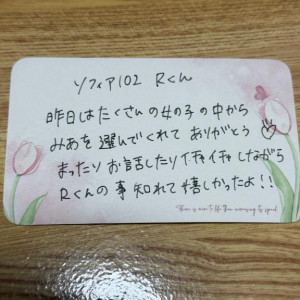 ソフィア102 Rくん
昨日はたくさんの女の子の中から
みあを選んでくれてありがとう♡
まったりお話したりイチャイチャしながら
Rくんの事知れて嬉しかったよ!!
There is more to life than increasing its speed